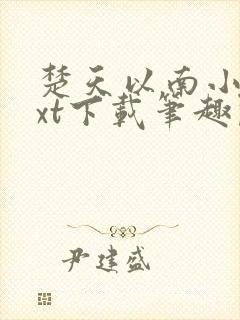 楚天以南小
xt下载笔趣
尹建盛